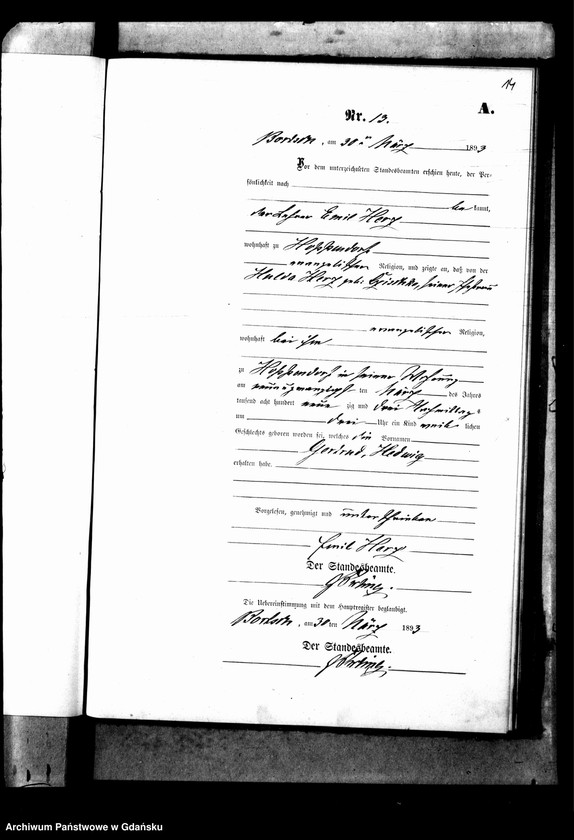 14
A.
Nr. 13.
am 30ten März 1893
Vor dem unterzeichneten Standesbeamten erschien heute, der Per-
sönlichkeit nach
be kannt,
der Lehrer Emil Herz
wohnhaft zu Hoppendorf
evangelischer Religion, und zeigte an, daß von der
Hulda Herz geb. seiner Ehefrau
evangelischer Religion,
wohnhaft bei ihm
zu Hoppendorf in seiner Wohnung
am neunzwanzigsten März des Jahres
tausend acht hundert neun zig und drei Nachmittags
um drei Uhr ein Kind weib lichen
Geschlechts geboren worden sei, welches die Vornamen
Gertrud, Hedwig
erhalten habe.
Vorgelesen, genehmigt und unterschrieben
Emil Herz
Der Standesbeamte.
Die Uebereinstimmung mit dem Hauptregister beglaubigt.
am 30 ten März 1893
Der Standesbeamte.
Archiwum Państwowe w Gdańsku